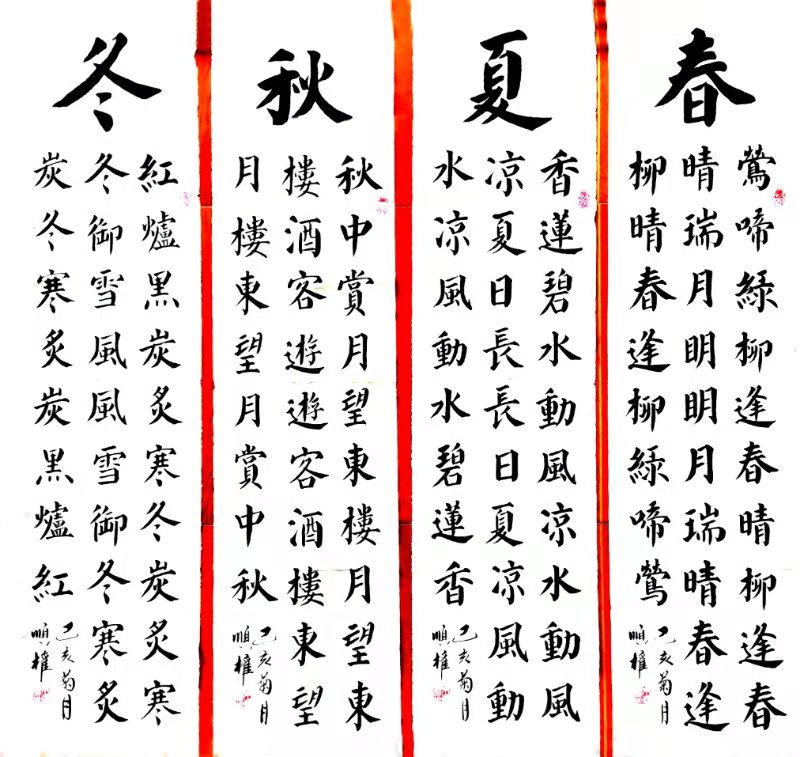 春
鶯啼綠柳逢春晴柳逢春
晴瑞月明明月瑞晴春逢
柳晴春逢柳綠啼鶯
己亥菊月
順權
夏
香蓮碧水動風凉水動風
凉夏日長長日夏凉風動
水凉風動水碧蓮香
己亥菊月
順權
秋
秋中賞月望東樓月望東
樓酒客遊遊客酒樓東望
月樓東望月賞中秋
己亥菊月
順權
冬
紅爐黑炭炙寒冬炭炙寒
冬御雪風風雪御冬寒炙
炭冬寒炙炭黑爐紅
己亥菊月
順權